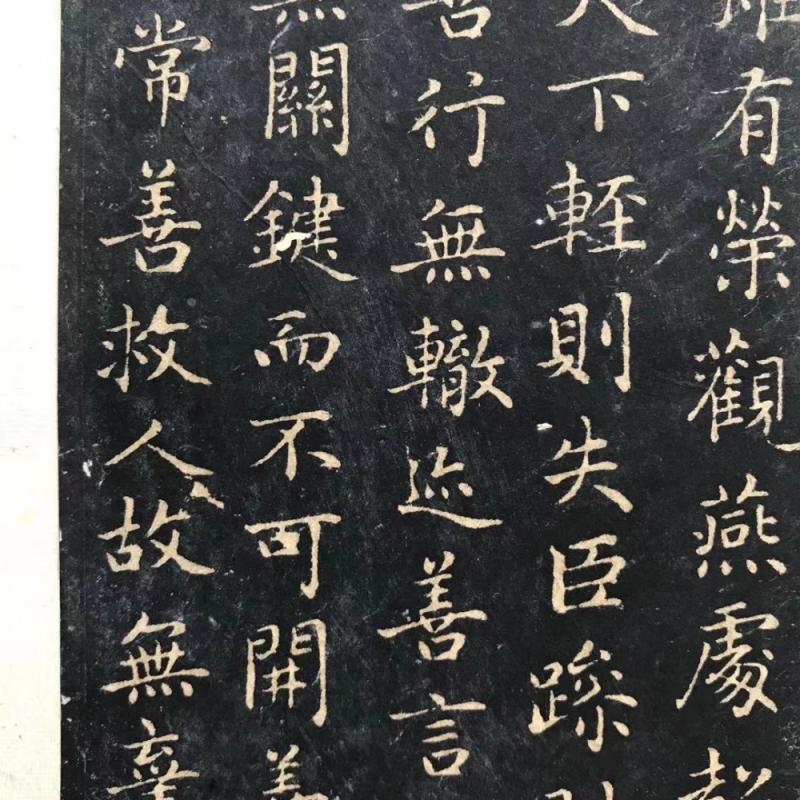 雖有榮觀燕處超
天下輕則失臣躁則
善行無轍迹善言
無關鍵而不可開善
常善救人故無棄